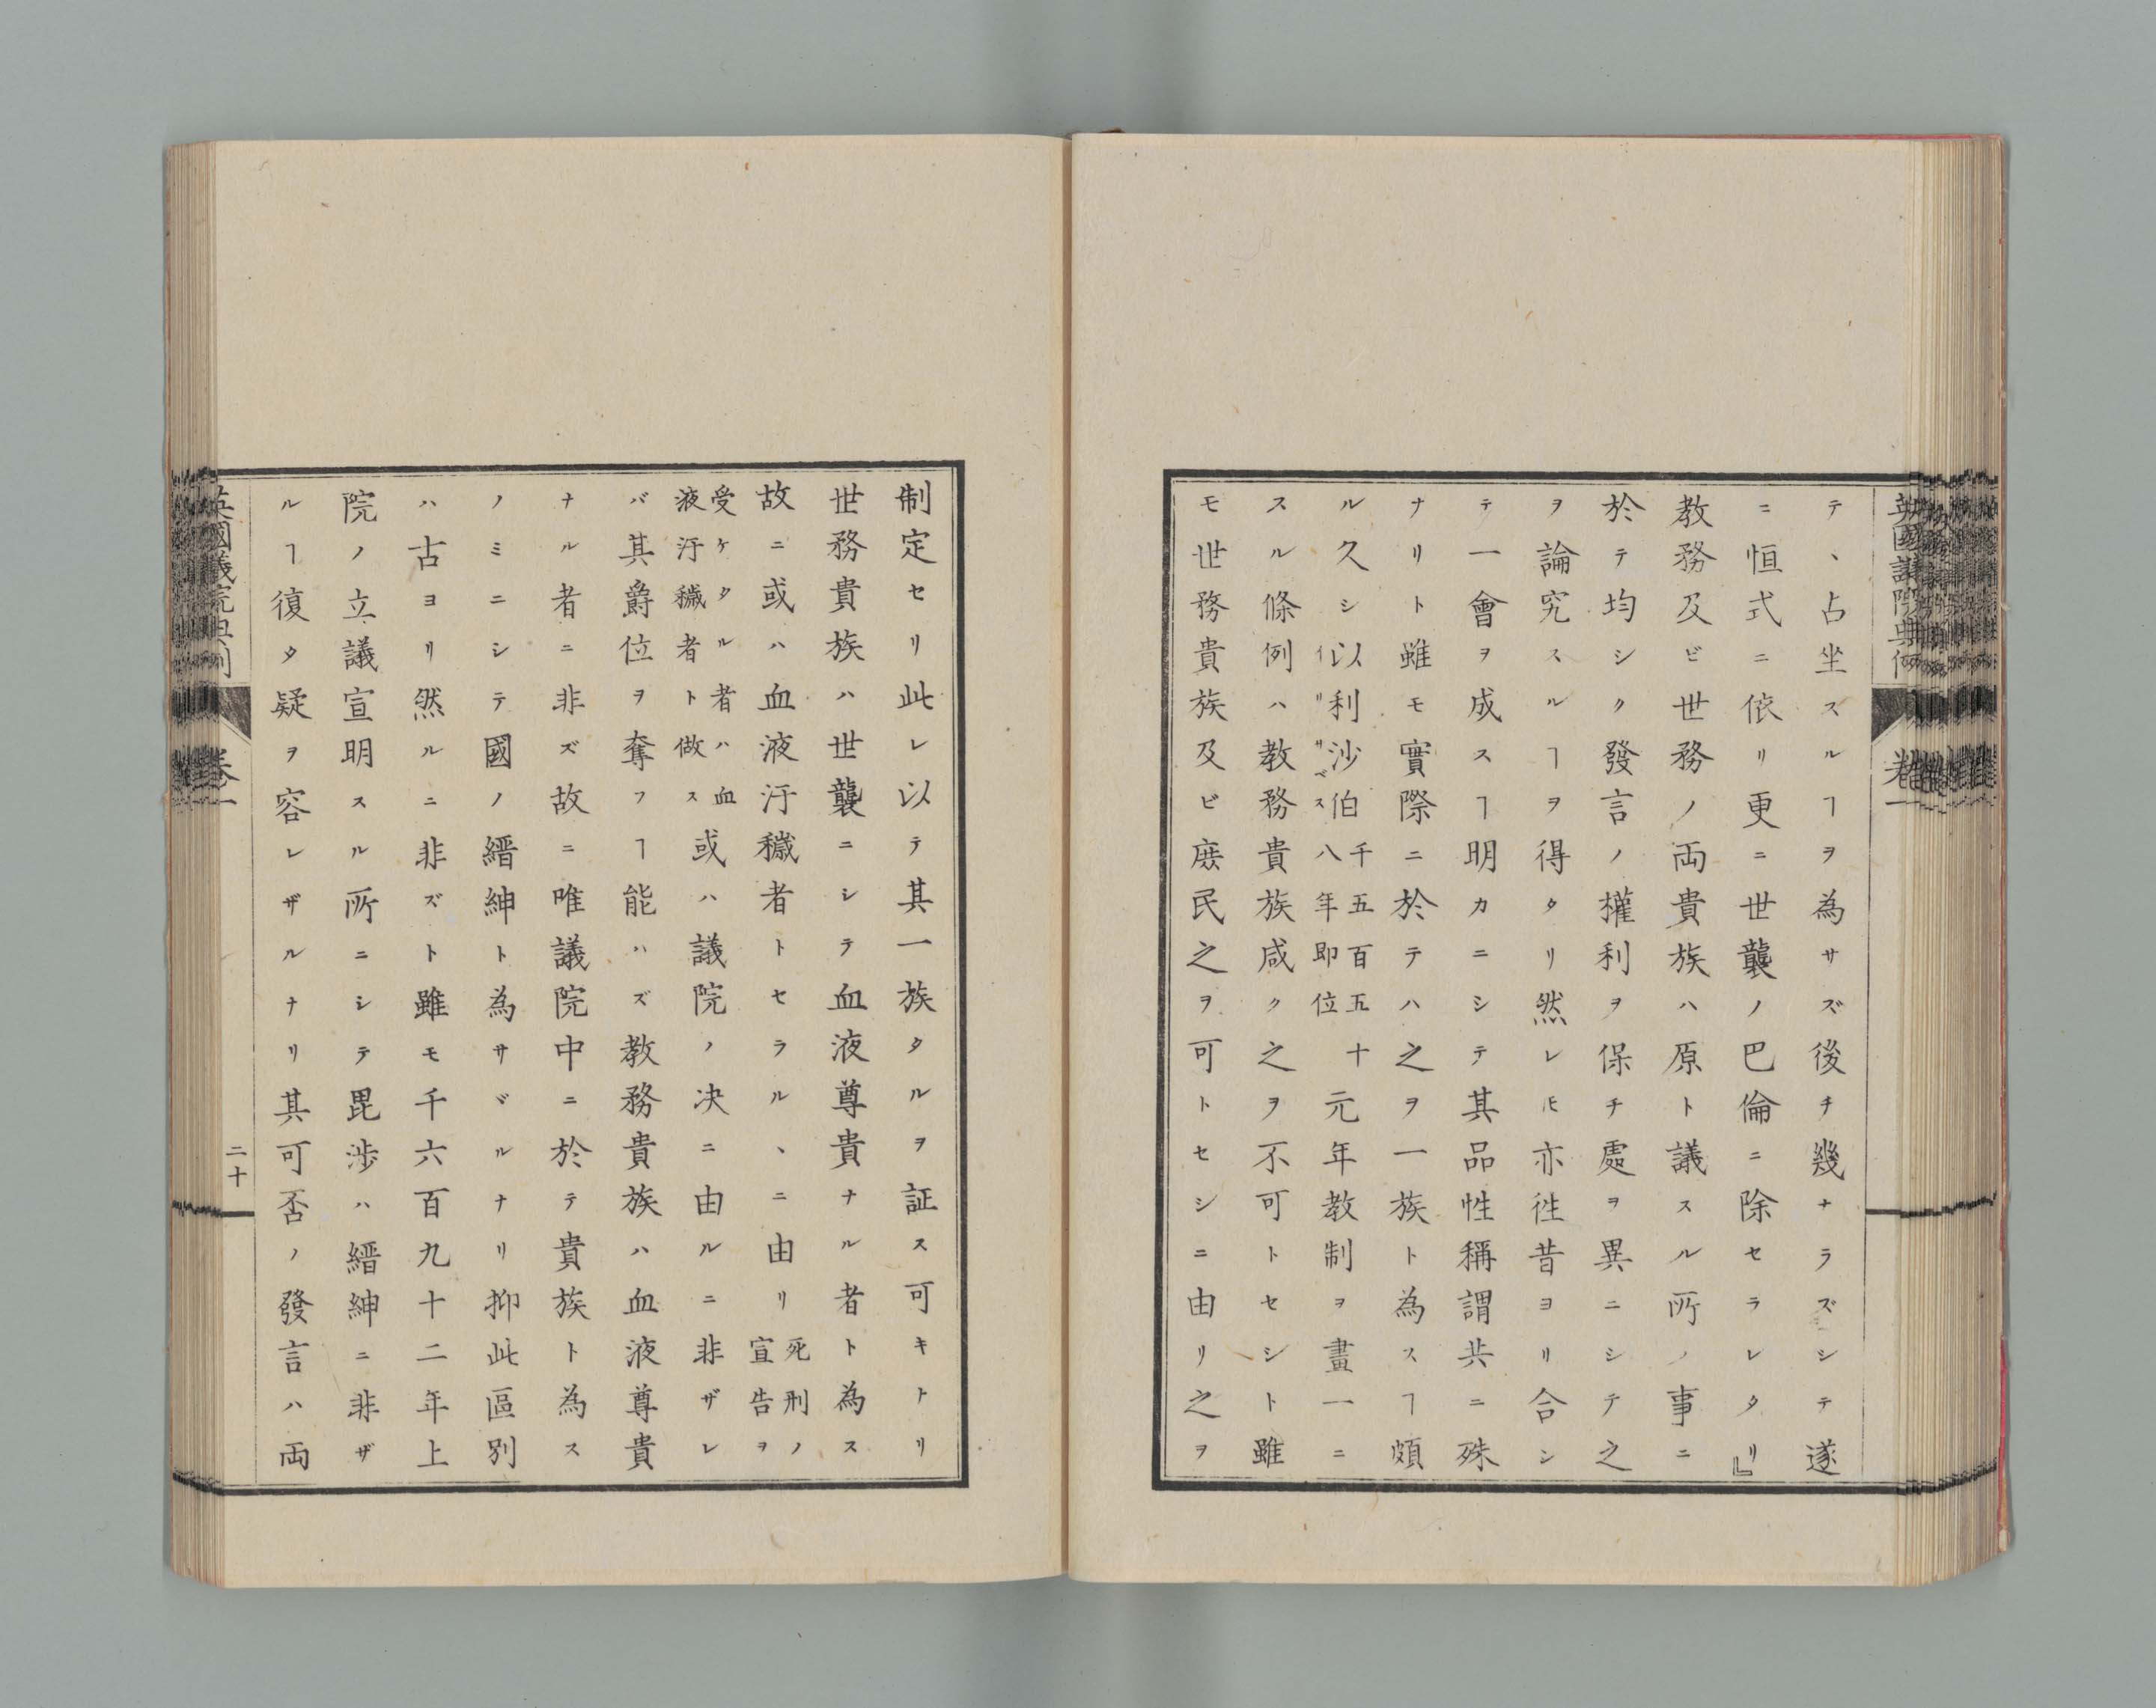 英國議院典例
卷一
テ、占坐スルヿヲ為サズ後チ幾ナラズシテ遂
ニ恒式ニ依リ更ニ世襲ノ巴倫ニ除セラレタリ』
教務及ビ世務ノ両貴族ハ原ト議スル所ノ事ニ
於テ均シク發言ノ權利ヲ保チ處ヲ異ニシテ之
ヲ論究スルヿヲ得タリ然レ𪜈亦徃昔ヨリ合シ
テ一會ヲ成スヿ明カニシテ其品性稱謂共ニ殊
ナリト雖モ實際ニ於テハ之ヲ一族ト為スヿ頗
ル久シ以利沙伯千五百五十八年即位元年教制ヲ畫一ニ
イリサベス
スル條例ハ教務貴族咸ク之ヲ不可トセシト雖
モ世務貴族及ビ庶民之ヲ可トセシニ由リ之ヲ
制定セリ此レ以テ其一族タルヲ証ス可キトリ
世務貴族ハ世襲ニシテ血液尊貴ナル者ト為ス
故ニ或ハ血液汙穢者トセラル、ニ由リ死刑ノ宣告ヲ
受ケタル者ハ血液汙穢者ト做ス或ハ議院ノ决ニ由ルニ非ザレ
バ其爵位ヲ奪フヿ能ハズ教務貴族ハ血液尊貴
ナル者ニ非ズ故ニ唯議院中ニ於テ貴族ト為ス
ノミニシテ國ノ縉紳ト為サヾルナリ抑此區別
ハ古ヨリ然ルニ非ズト雖モ千六百九十二年上
院ノ立議宣明スル所ニシテ毘渉ハ縉紳ニ非ザ
ルヿ復タ疑ヲ容レザルナリ其可否ノ發言ハ両
英國議院典例
卷一
二十